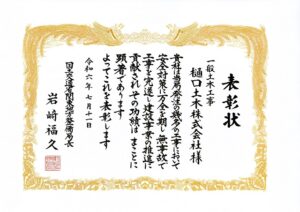 表彰状
一般土木工事
樋口土木株式会社様
貴社は当局発注の幾多の工事において
安全対策に万全を期し無事故で
工事を完遂し建設事業の推進に
貢献されその功績はまことに
顕著であります
よってこれを表彰します
令和六年七月十一日
国土交通省関東地方整備局長
岩﨑福久